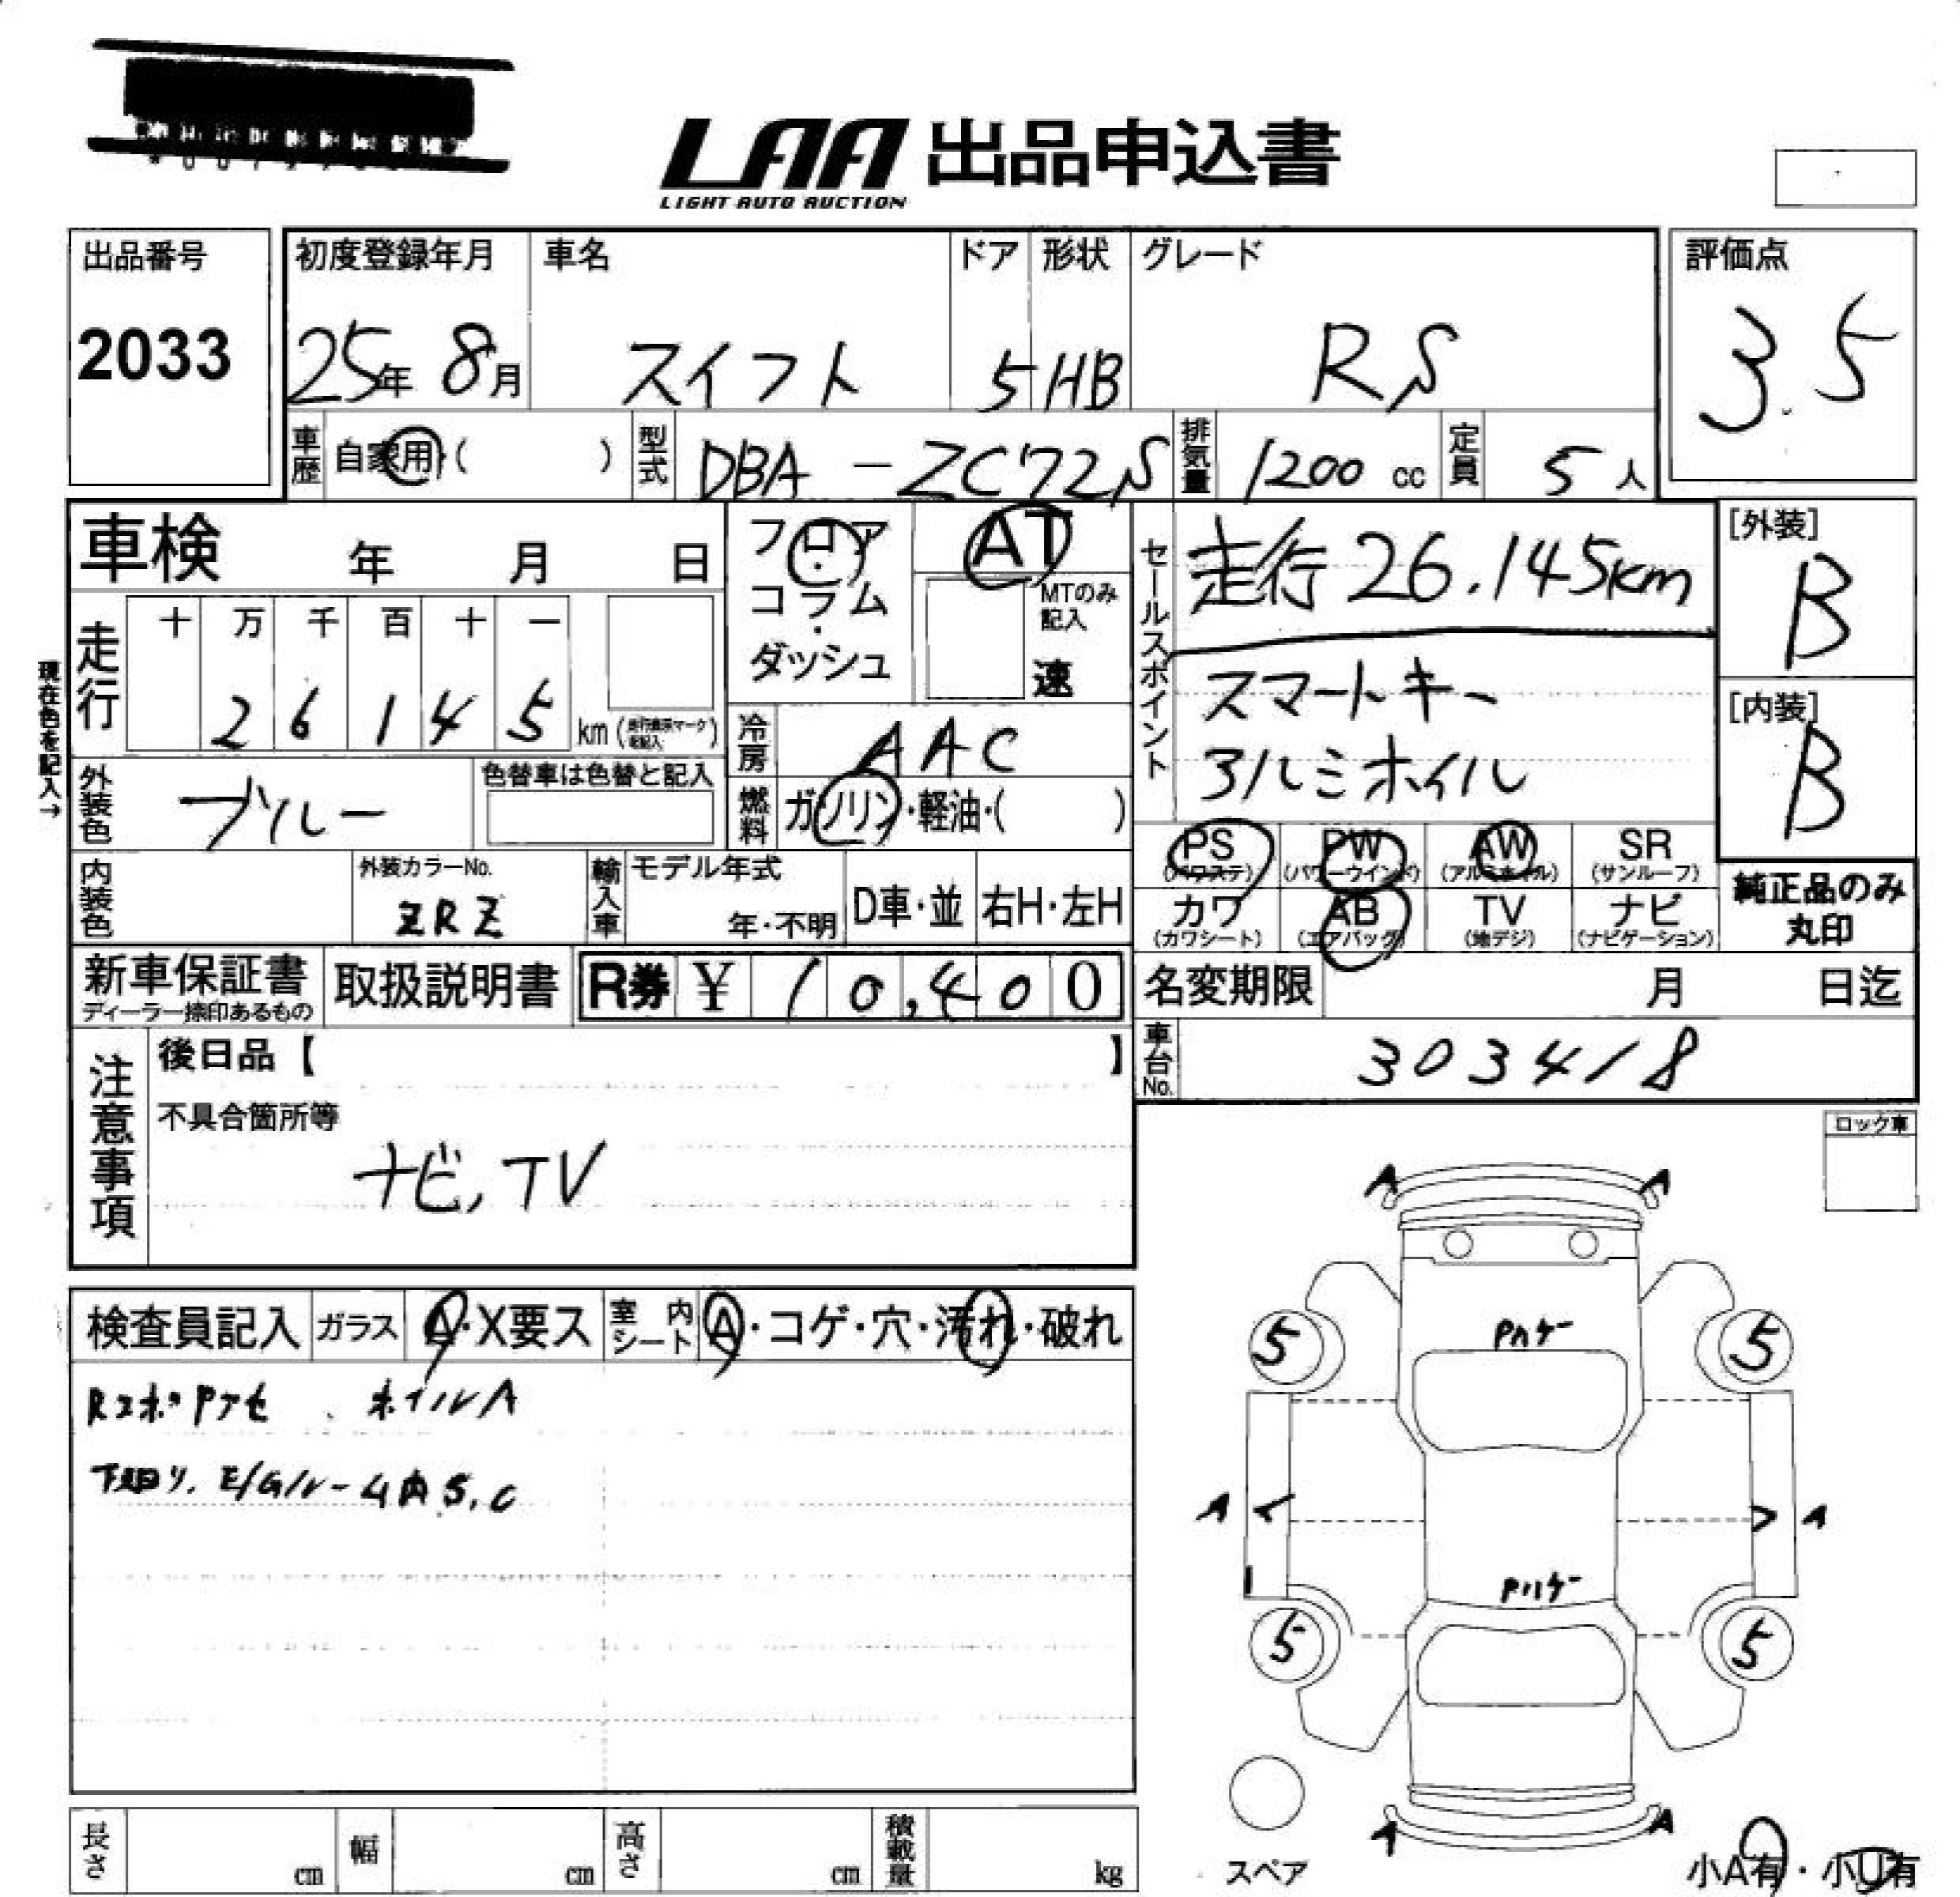 LAA 出品申込書
LIGHT AUTO AUCTION
出品番号
2033
初度登録年月
25年 8月
車名
スイフト
ドア
5
形状
HB
グレード
RS
評価点
3.5
車歴 自家用・( )
型式 DBA-ZC72S
排気量 1200 cc
定員 5 人
車検 年 月 日
走行
十 万 千 百 十 一
2 6 1 4 5 km
現在色を記入→
フロア・コラム・ダッシュ
AT
MTのみ記入
速
冷房 AAC
燃料 ガソリン・軽油・( )
セールスポイント
走行26.145km
スマートキー
アルミホイル
[外装]
B
[内装]
B
外装色 ブルー
色替車は色替と記入
内装色
外装カラーNo.
ZRZ
輸入車
モデル年式
年・不明
D車・並
右H・左H
PS (パワステ)
PW (パワーウインド)
AW (アルミホイル)
SR (サンルーフ)
カワ (カワシート)
AB (エアバッグ)
TV (地デジ)
ナビ (ナビゲーション)
純正品のみ丸印
新車保証書
ディーラー捺印あるもの
取扱説明書
R券 ¥ 10,400
名変期限 月 日迄
車台No. 303418
注意事項
後日品【 】
不具合箇所等
ナビ,TV
ロック車
検査員記入
ガラス A・X要ス
室内シート A・コゲ・穴・汚れ・破れ
Rコホ°Pアセ、ホイルA
下回り、E/Gルーム内S,C
A A
5 Pハゲ 5
A A
Pハゲ
5 5
A A
スペア
小A有・小U有
長さ cm
幅 cm
高さ cm
積載量 kg